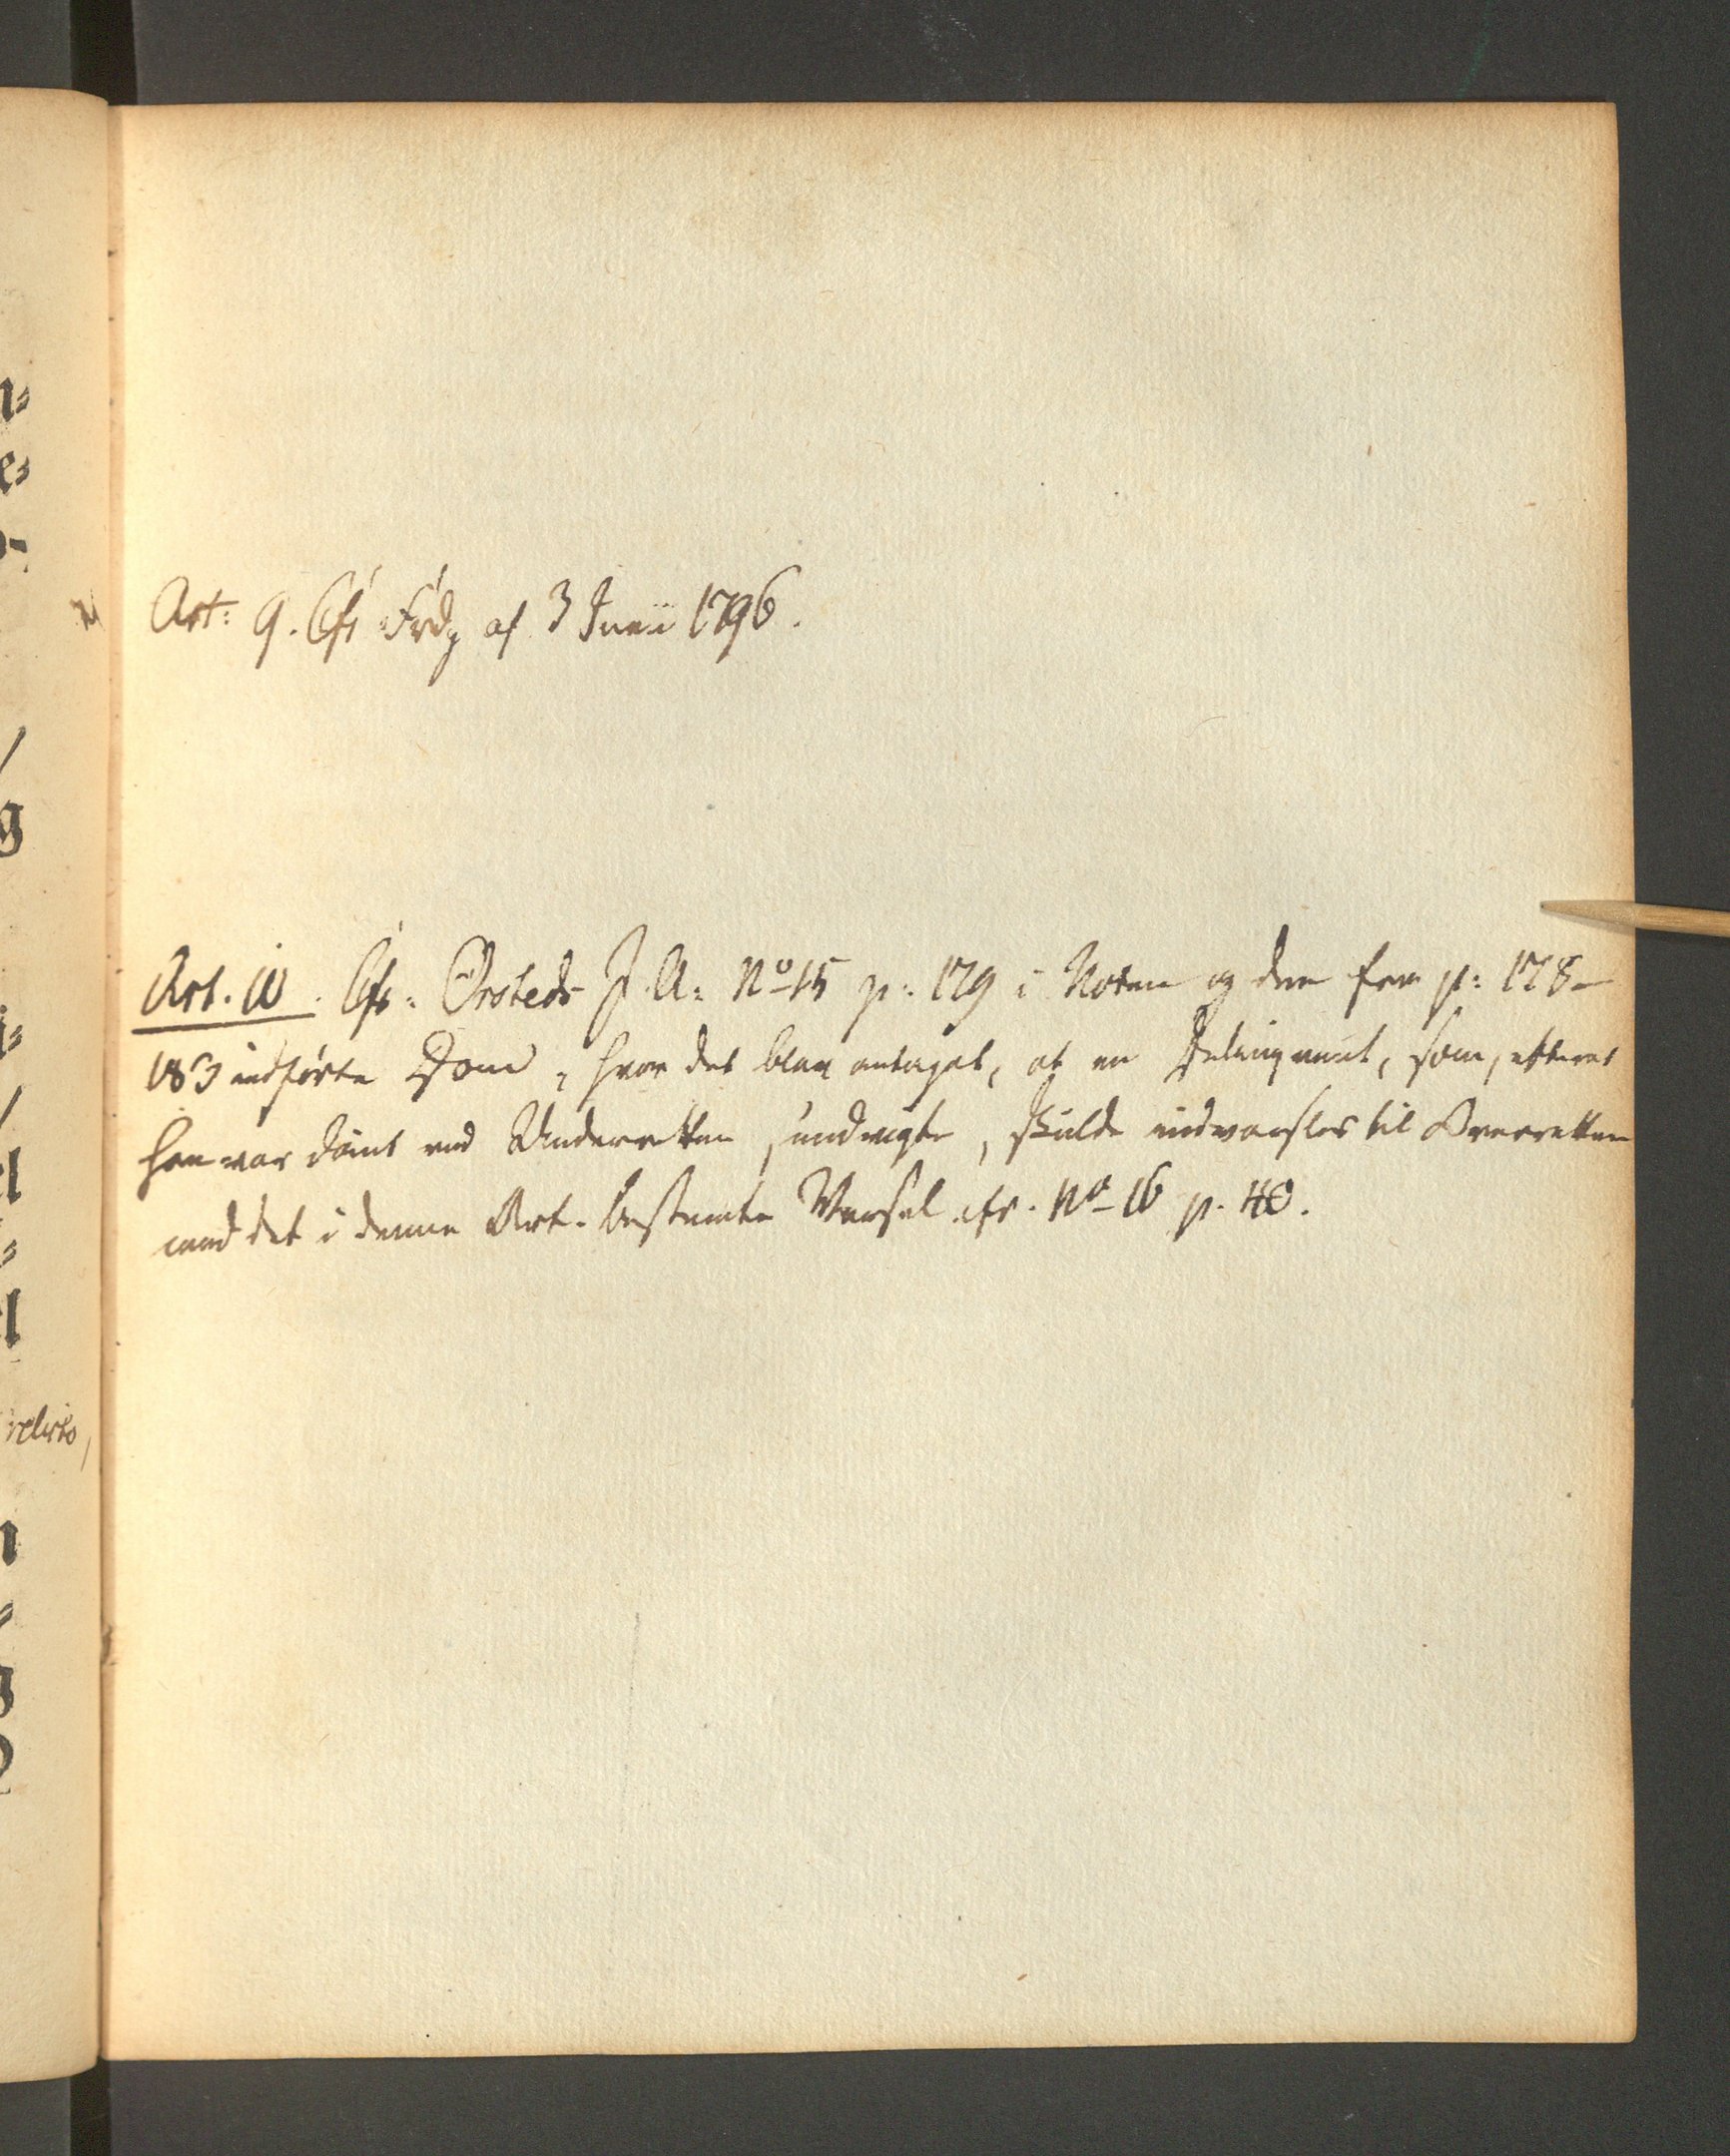 Art: 9. Cfr Frdg af 3 Junii 1796.
Art. 10. Cfr: Ørsteds J. A: No 15 p: 179 i Noten og den fra p: 178-
183 indførte Dom, hvor det blev antaget, at en Delinqvent, som, efterat
han var dömt ved Underretten, undvigte, skulde indvarsles til Overretten
med det i denne Art. bestemte Varsel. cfr. No 16 p. 40.